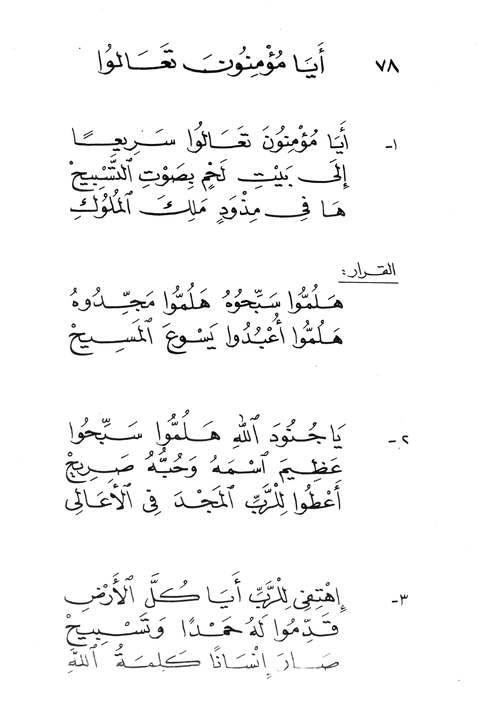 ٧٨ أَيَا مُؤْمِنُونَ تَعَالوُا
١- أَيَا مُؤْمِنُونَ تَعَالُوا سَرِيعًا
إِلَى بَيْتِ لَحْمٍ بِصَوْتِ التَّسْبِيحْ
هَا فِي مِذْوَدٍ مَلِكَ الْمُلُوكِ
القرار:
هَلُمُّوا سَبِّحُوهُ هَلُمُّوا مَجِّدُوهُ
هَلُمُّوا أُعْبُدُوا يَسُوعَ الْمَسِيحْ
٢- يَا جُنُودَ اللهِ هَلُمُّوا سَبِّحُوا
عَظِيمَ اسْمَهُ وَحُبُّهُ صَرِيحْ
أَعْطُوا لِلْرَّبِّ الْمَجْدَ فِي الْأَعَالِي
٣- إِهْتِفِي لِلْرَّبِّ أَيَا كُلَّ الْأَرْضِ
قَدِّمُوا لَهُ حَمْدًا وَتَسْبِيحْ
صَارَ إِنْسَانًا كَلِمَةُ اللهِ